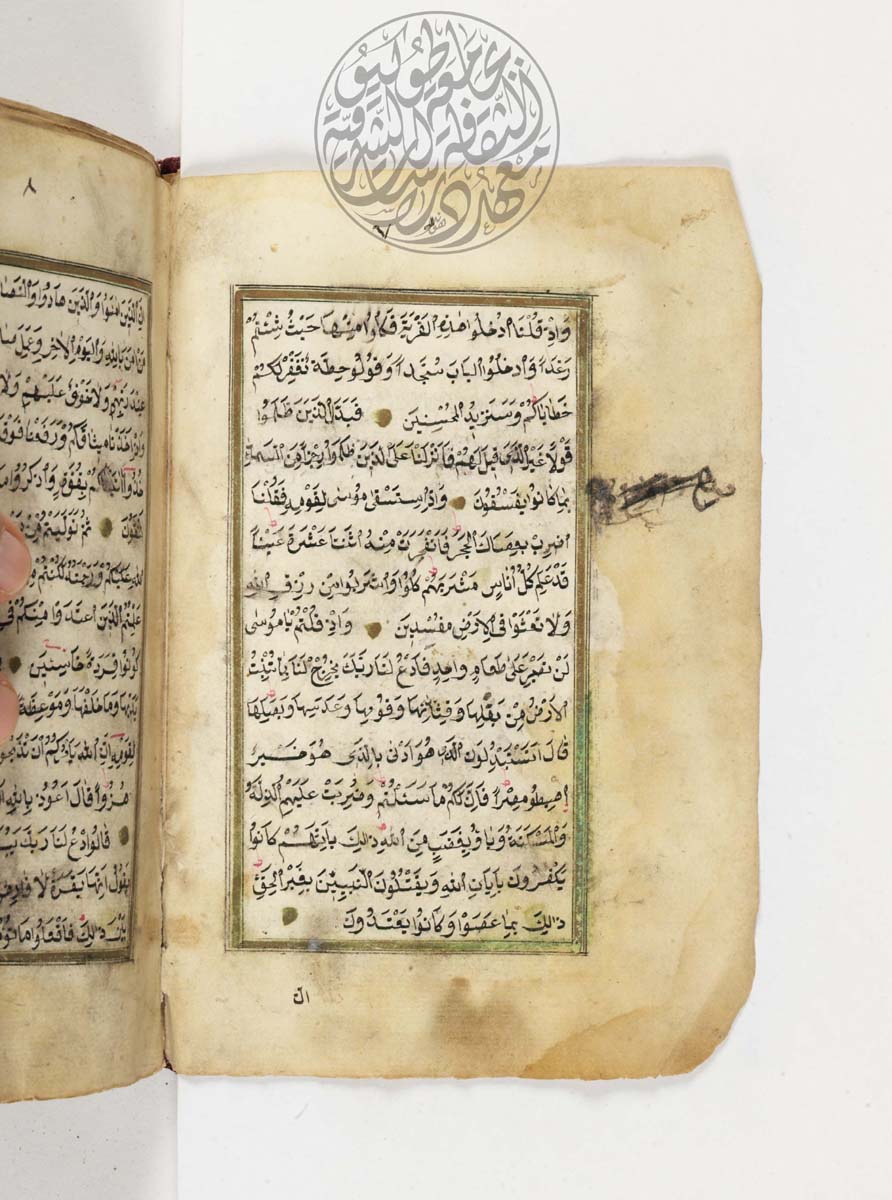 جامعة طوكيو
معهد دراسات الثقافة الشرقية
وَإِذْ قُلْنَا ادْخُلُوا هٰذِهِ الْقَرْيَةَ فَكُلُوا مِنْهَا حَيْثُ شِئْتُمْ
رَغَدًا وَادْخُلُوا الْبَابَ سُجَّدًا وَقُولُو حِطَّةٌ نَغْفِرْ لَكُمْ
خَطَايَاكُمْ وَسَنَزِيدُ الْمُحْسِنِينَ فَبَدَّلَ الَّذِينَ ظَلَمُوا
قَوْلًا غَيْرَ الَّذِي قِيلَ لَهُمْ فَأَنْزَلْنَا عَلَى الَّذِينَ ظَلَمُوا رِجْزًا مِنَ السَّمَاءِ
بِمَا كَانُوا يَفْسُقُونَ وَإِذِ اسْتَسْقَى مُوسَى لِقَوْمِهِ فَقُلْنَا
اضْرِبْ بِعَصَاكَ الْحَجَرَ فَانْفَجَرَتْ مِنْهُ اثْنَتَا عَشْرَةَ عَيْنًا
قَدْ عَلِمَ كُلُّ أُنَاسٍ مَشْرَبَهُمْ كُلُوا وَاشْرَبُوا مِنْ رِزْقِ اللهِ
وَلَا تَعْثَوْا فِي الْأَرْضِ مُفْسِدِينَ وَإِذْ قُلْتُمْ يَا مُوسَى
لَنْ نَصْبِرَ عَلَى طَعَامٍ وَاحِدٍ فَادْعُ لَنَا رَبَّكَ يُخْرِجْ لَنَا مِمَّا تُنْبِتُ
الْأَرْضُ مِنْ بَقْلِهَا وَقِثَّائِهَا وَفُومِهَا وَعَدَسِهَا وَبَصَلِهَا
قَالَ أَتَسْتَبْدِلُونَ الَّذِي هُوَ أَدْنَى بِالَّذِي هُوَ خَيْرٌ
اهْبِطُو مِصْرًا فَإِنَّ لَكُمْ مَا سَئَلْتُمْ وَضُرِبَتْ عَلَيْهِمُ الذِّلَّةُ
وَالْمَسْكَنَةُ وَبَاؤُ بِغَضَبٍ مِنَ اللهِ ذٰلِكَ بِأَنَّهُمْ كَانُوا
يَكْفُرُونَ بِآيَاتِ اللهِ وَيَقْتُلُونَ النَّبِيِّينَ بِغَيْرِ الْحَقِّ
ذٰلِكَ بِمَا عَصَوْا وَكَانُوا يَعْتَدُونَ
ان
٨
إِنَّ الَّذِينَ آمَنُوا وَالَّذِينَ هَادُوا وَالنَّصَا
مَنْ آمَنَ بِاللهِ وَالْيَوْمِ الْآخِرِ وَعَمِلَ صَا
عِنْدَ رَبِّهِمْ وَلَا خَوْفٌ عَلَيْهِمْ وَلَا
وَإِذْ أَخَذْنَا مِيثَاقَكُمْ وَرَفَعْنَا فَوْقَ
خُذُوا مَا آتَيْنَاكُمْ بِقُوَّةٍ وَاذْكُرُوا مَا
تَتَّقُونَ ثُمَّ تَوَلَّيْتُمْ مِنْ بَعْدِ
اللهِ عَلَيْكُمْ وَرَحْمَتُهُ لَكُنْتُمْ مِنَ
عَلِمْتُمُ الَّذِينَ اعْتَدَوْا مِنْكُمْ فِي
كُونُوا قِرَدَةً خَاسِئِينَ
يَدَيْهَا وَمَا خَلْفَهَا وَمَوْعِظَةً
لِقَوْمِهِ إِنَّ اللهَ يَأْمُرُكُمْ أَنْ تَذْبَحُوا
هُزُوًا قَالَ أَعُوذُ بِاللهِ أَ
قَالُوا ادْعُ لَنَا رَبَّكَ يُبَ
يَقُولُ إِنَّهَا بَقَرَةٌ لَا فَارِضٌ
بَيْنَ ذٰلِكَ فَافْعَلُوا مَا تُؤْمَ